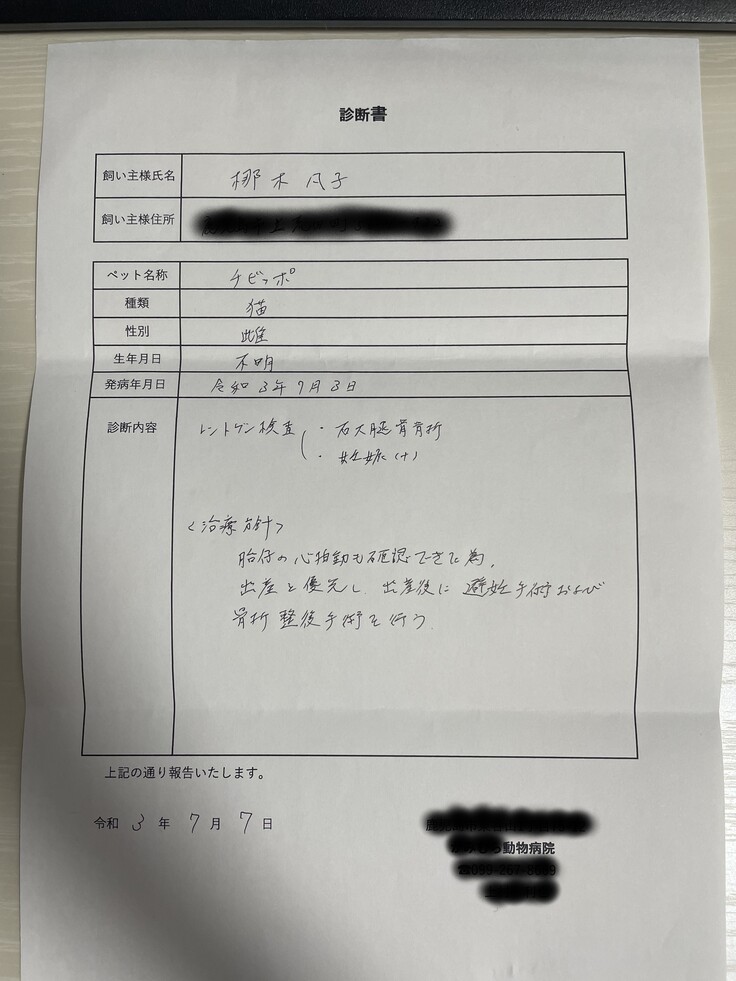 診断書
飼い主様氏名 梛木 凡子
飼い主様住所
ペット名称 チビッポ
種類 猫
性別 雌
生年月日 不明
発病年月日 令和 3年 7月 3日
診断内容 レントゲン検査 ・右大腿骨骨折
・妊娠(+)
<治療方針>
胎仔の心拍動も確認できた為、
出産を優先し、出産後に避妊手術および
骨折整復手術を行う。
上記の通り報告いたします。
令和 3 年 7 月 7 日
動物病院